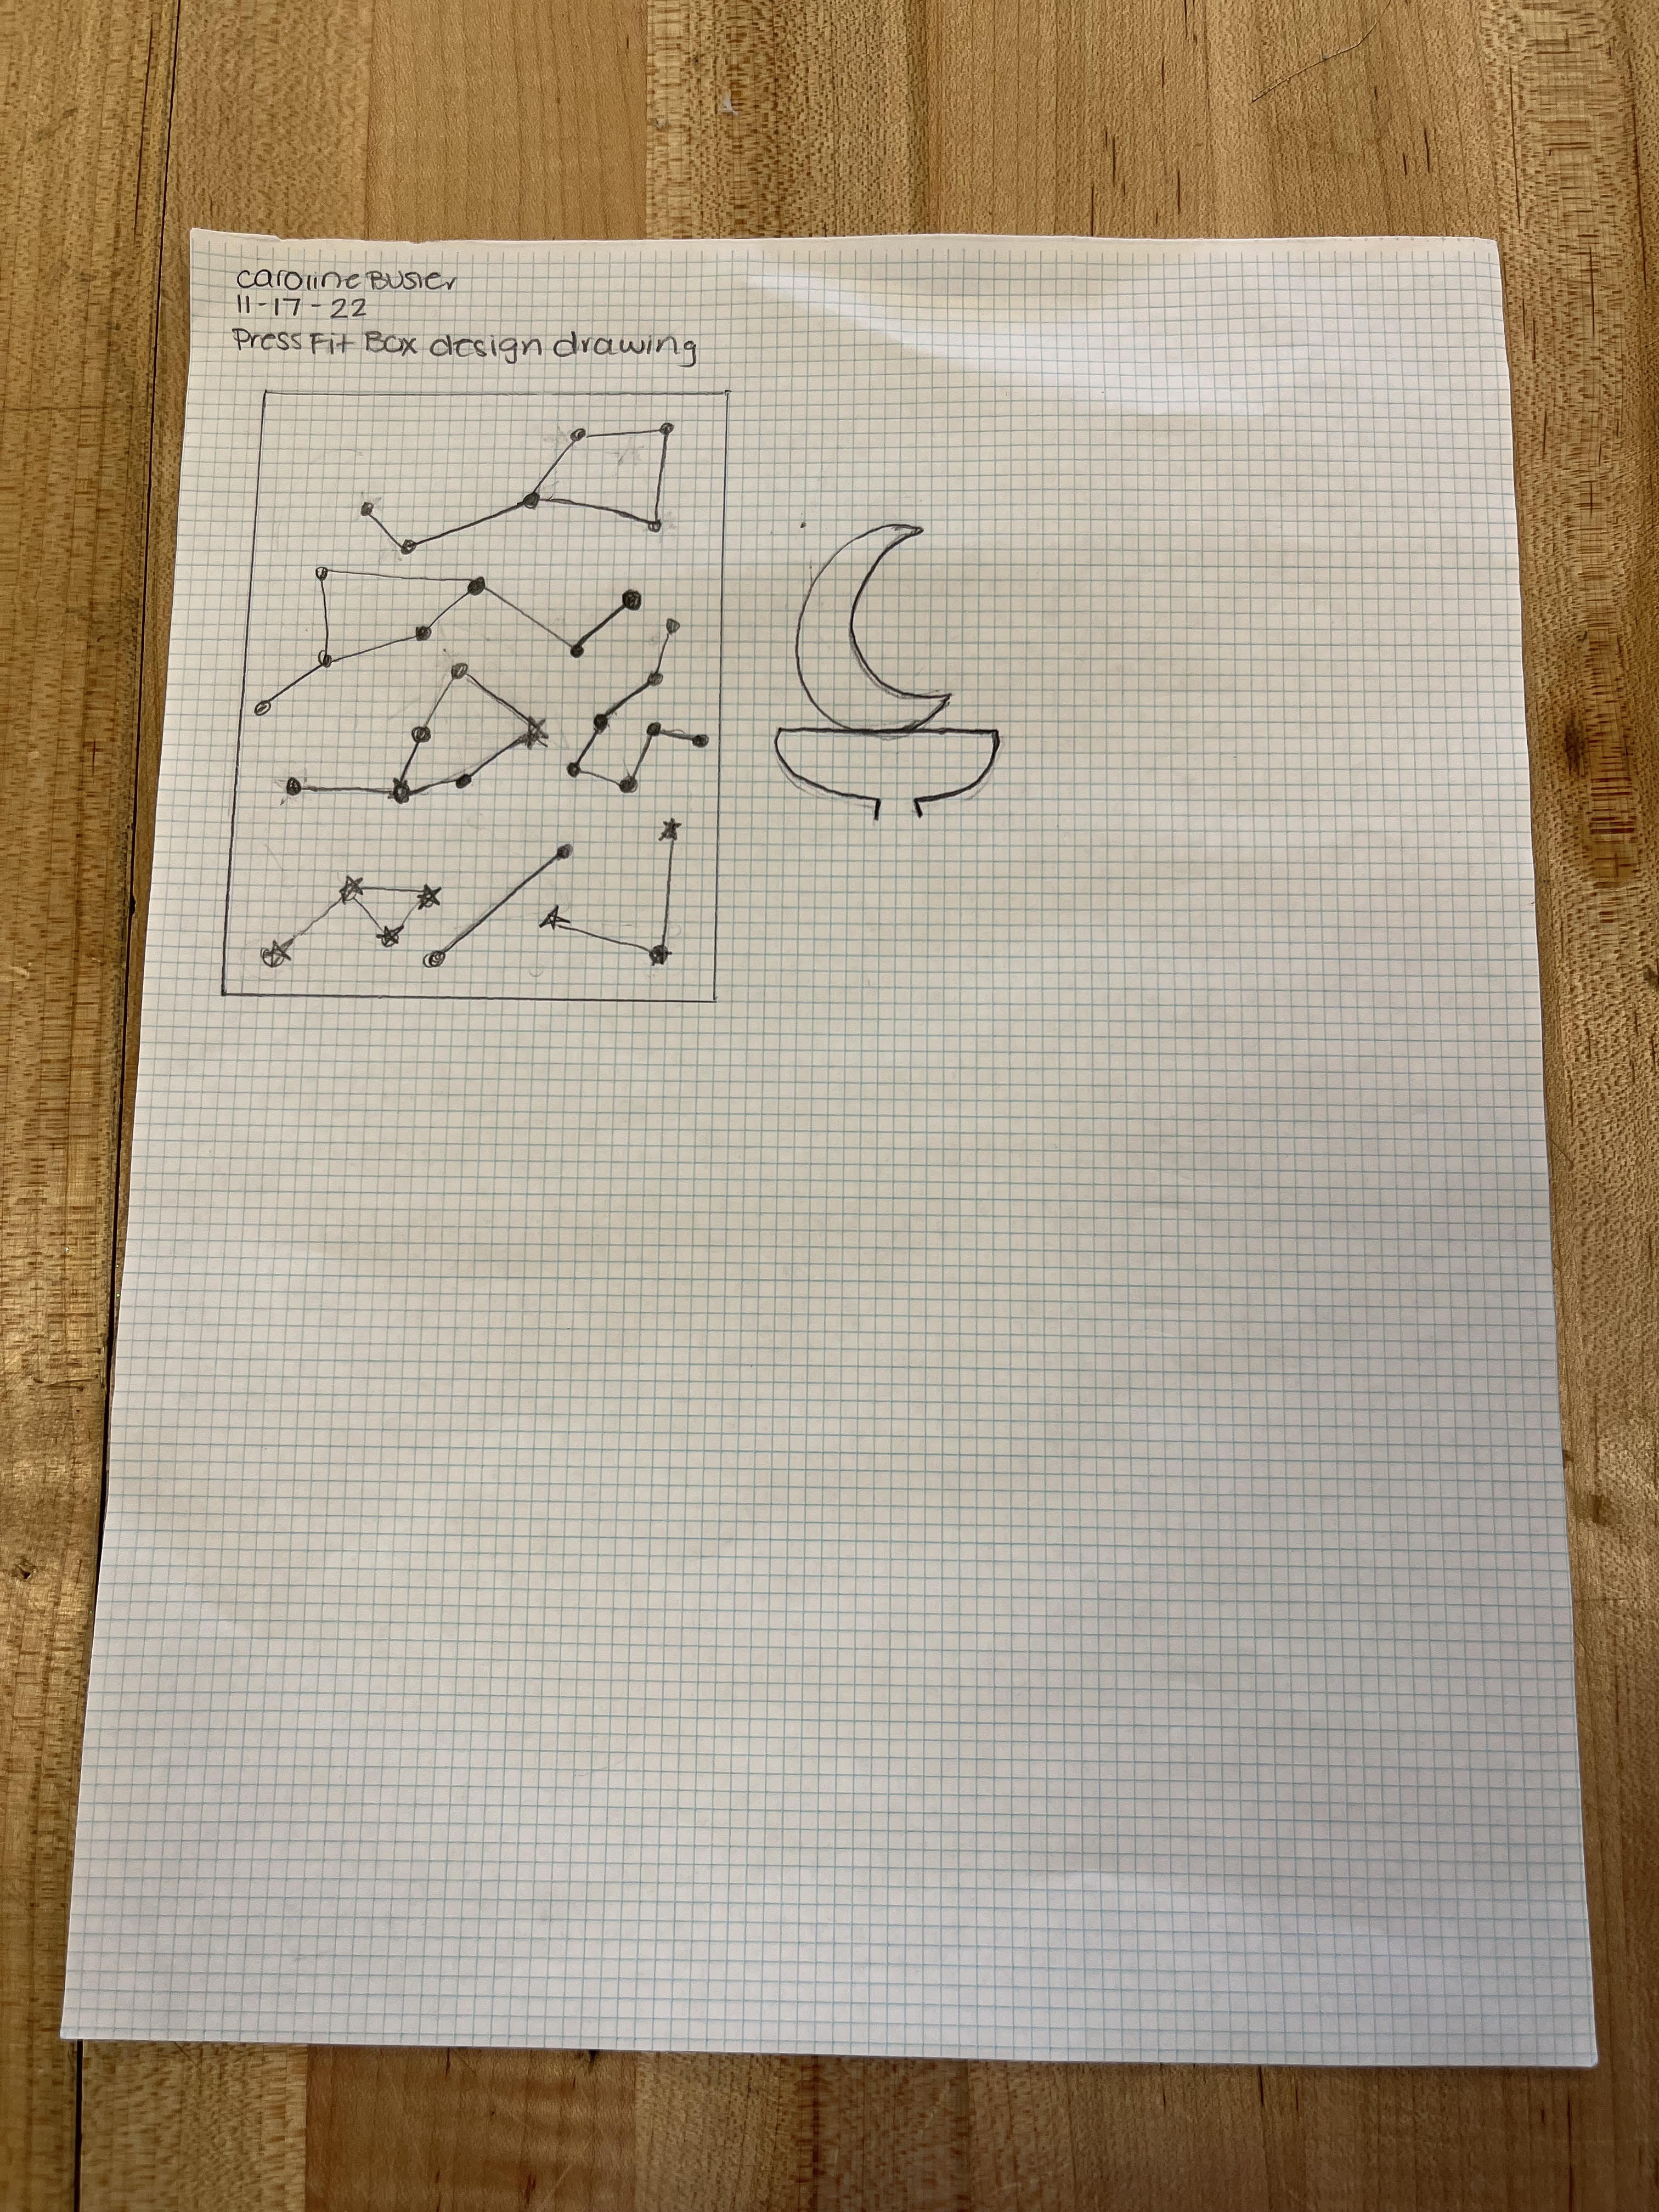 Caroline Busler
11-17-22
Press Fit Box design drawing